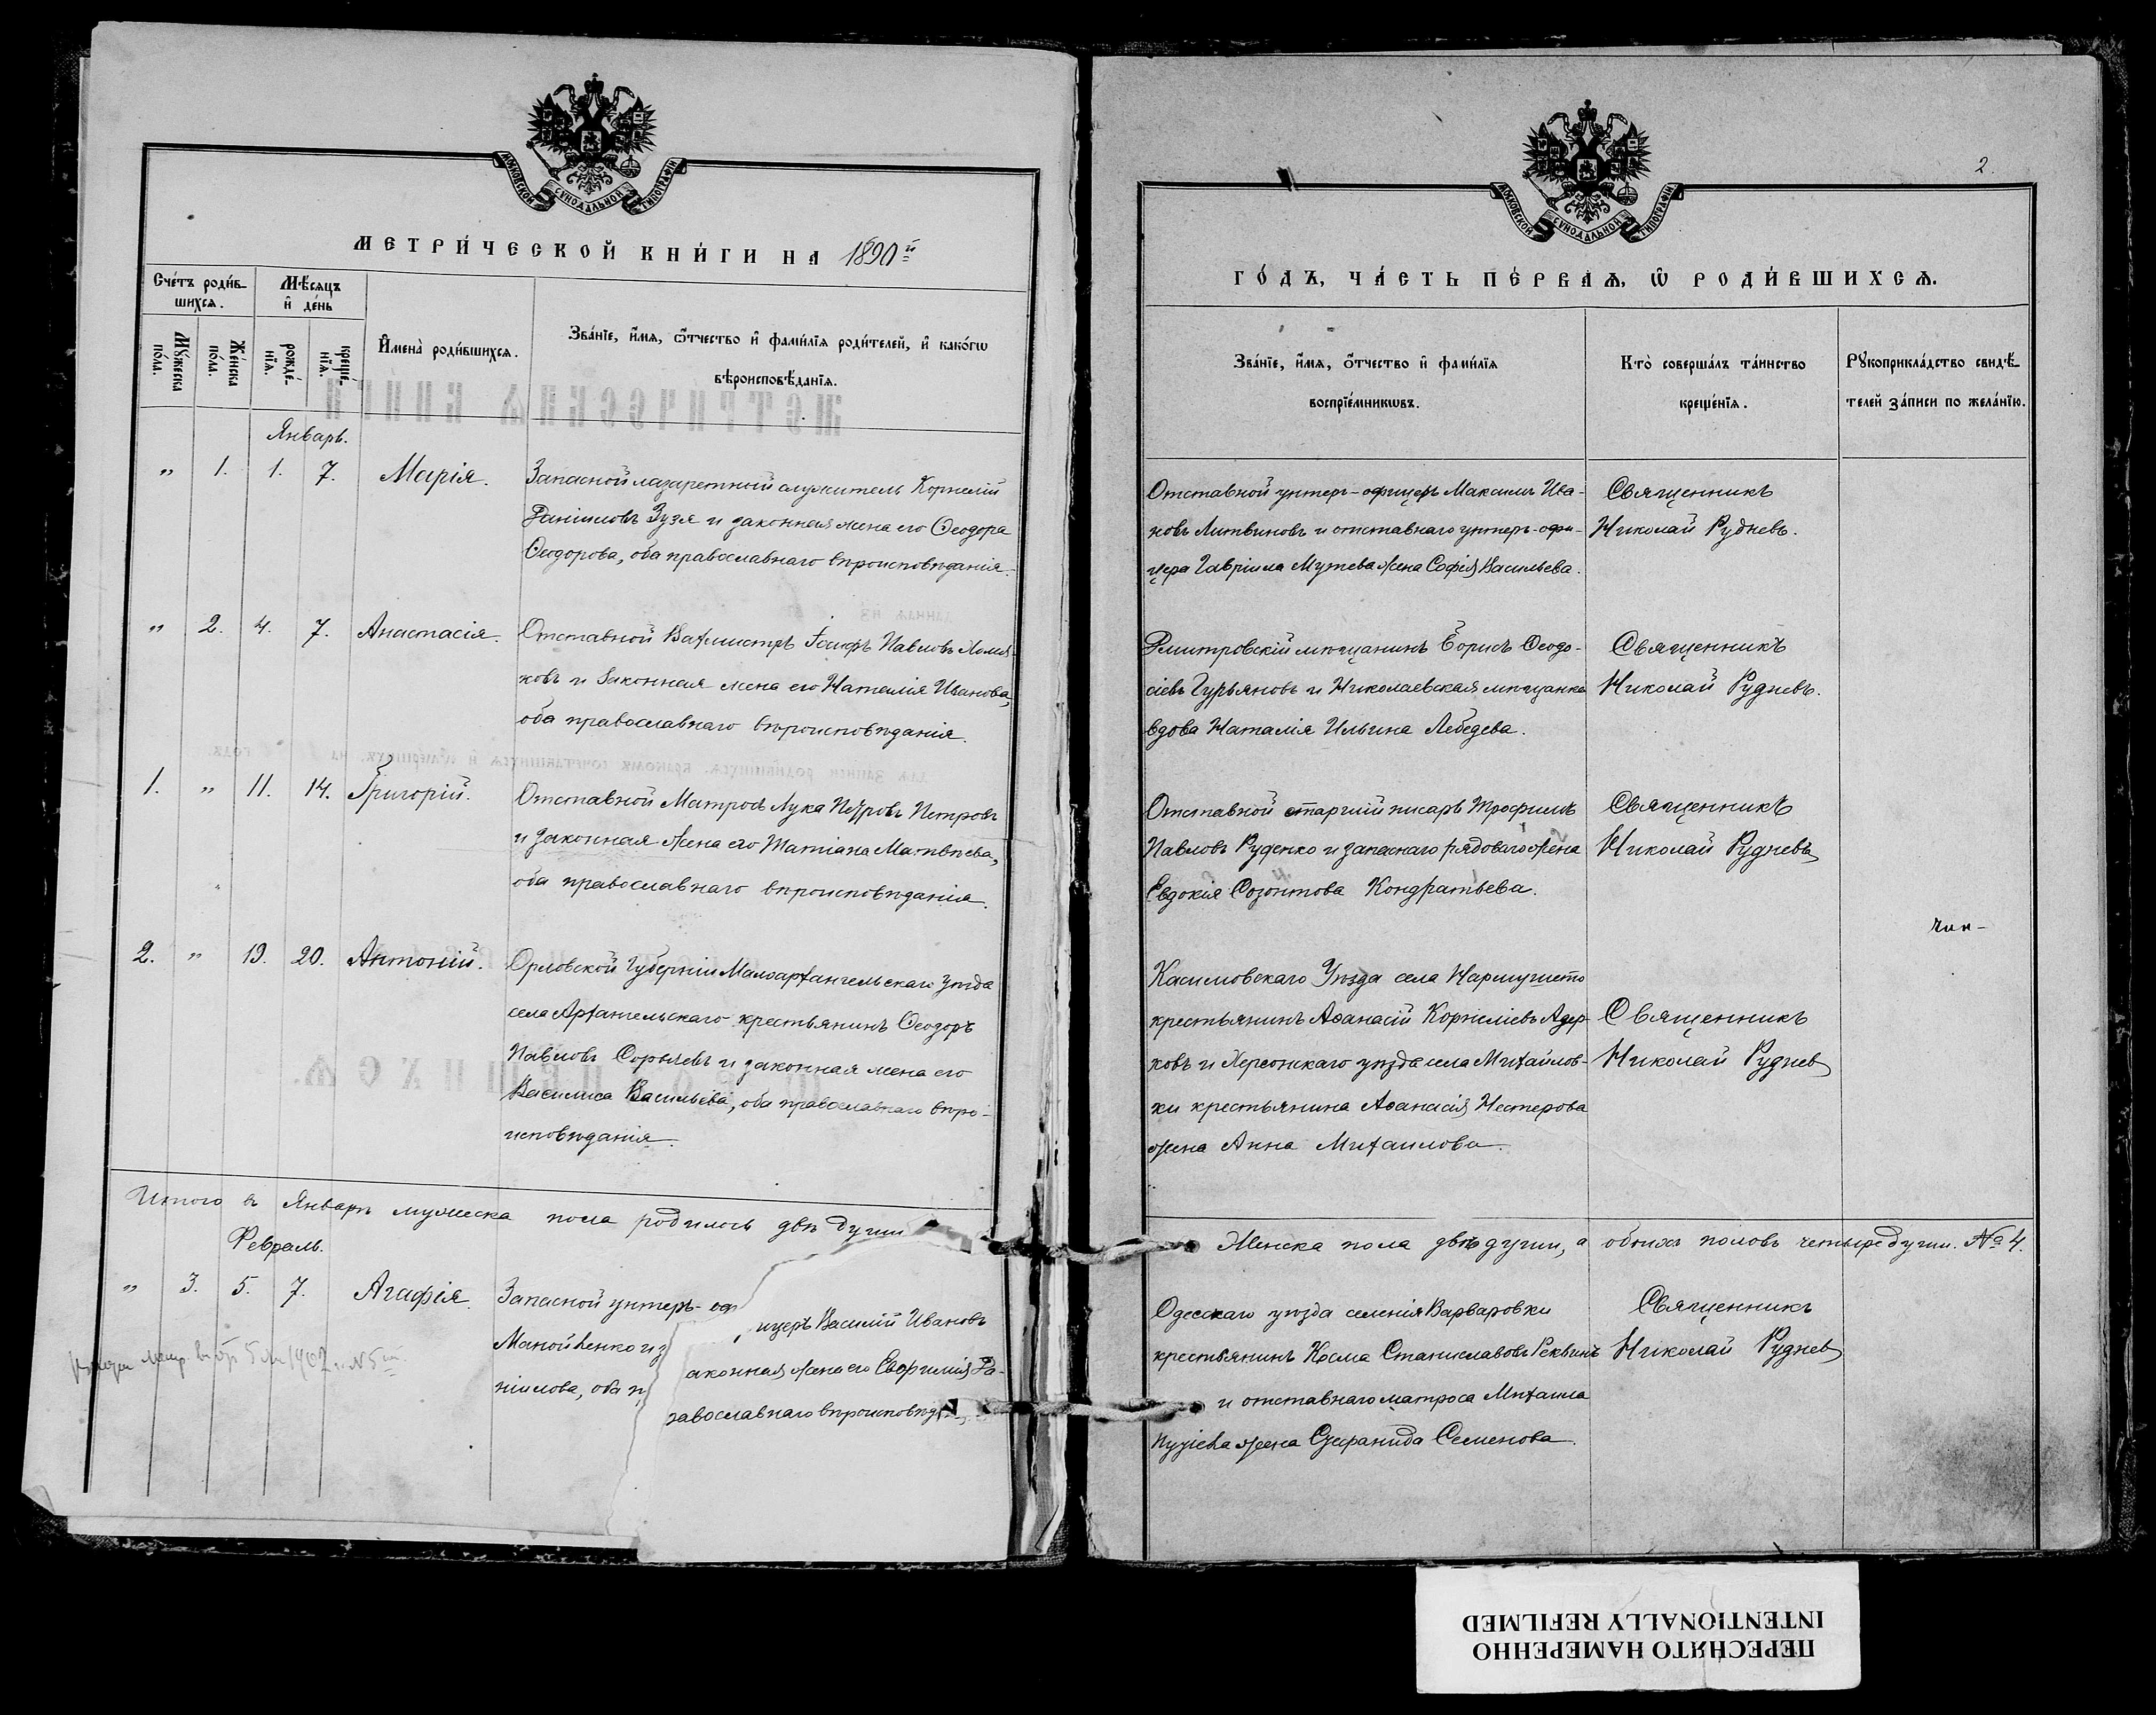 МОСКОВСКОЙ СУНОДАЛЬНОЙ ТИПОГРАФІИ
МЕТРИ́ЧЕСКОЙ КНИ́ГИ НА 1890й
Сче́тъ роди́в-
шихсѧ.
Мѣ́сѧцъ
и҆ де́нь
Мꙋ́жеска
по́ла.
Же́нска
по́ла.
рожде́-
нїѧ.
креще́-
нїѧ.
И҆мена̀ роди́вшихсѧ.
Зва́нїе, и҆́мѧ, ѻ҆́тчество и҆ фами́лїѧ роди́телей, и҆ како́гѡ
вѣроисповѣ́данїѧ.
Январь.
" 1. 1. 7. Марія.
Запасной лазаретный служитель Корнелій
Даніиловъ Зузя и законная жена его Ѳеодора
Ѳеодорова, оба православнаго вѣроисповѣданія.
" 2. 4. 7. Анастасія.
Отставной Вахмистръ Іосифъ Павловъ Хомя-
ковъ и законная жена его Наталія Иванова,
оба православнаго вѣроисповѣданія.
1. " 11. 14. Григорій.
Отставной Матросъ Лука Петровъ Петровъ
и законная жена его Татіана Матвѣева,
оба православнаго вѣроисповѣданія.
2. " 19. 20. Антоній.
Орловской Губерніи Малоархангельскаго уѣзда
села Архангельскаго крестьянинъ Ѳеодоръ
Павловъ Сорычевъ и законная жена его
Василиса Васильева, оба православнаго вѣро-
исповѣданія.
Итого въ Январѣ мужеска пола родилось двѣ души
Февраль.
" 3. 5. 7. Агафія.
Запасной унтеръ-офицеръ Василій Ивановъ
Манойленко и законная жена его Евфимія Да-
ніилова, оба православнаго вѣроисповѣд
5 1907 N5
2.
МОСКОВСКОЙ СУНОДАЛЬНОЙ ТИПОГРАФІИ
ГО́ДЪ, ЧА́СТЬ ПЕ́РВАѦ, Ѡ҆ РОДИ́ВШИХСѦ.
Зва́нїе, и҆́мѧ, ѻ҆́тчество и҆ фами́лїѧ
воспрїе́мникѡвъ.
Кто̀ соверша́лъ та́инство
креще́нїѧ.
Рꙋкоприкла́дство свидѣ́-
телей за́писи по жела́нїю.
Отставной унтеръ-офицеръ Максимъ Ива-
новъ Литвиновъ и отставнаго унтеръ-офи-
цера Гавріила Мужева жена Софія Васильева.
Священникъ
Николай Рудневъ.
Дмитровскій мѣщанинъ Борисъ Ѳеодо-
сіевъ Гурьяновъ и Николаевская мѣщанка
вдова Наталія Ильина Лебедева.
Священникъ
Николай Рудневъ.
Отставной старшій писарь Трофимъ
Павловъ Руденко и запаснаго рядоваго жена
Евдокія Созонтова Кондратьева.
Священникъ
Николай Рудневъ
Касимовскаго Уѣзда села Нармушето
крестьянинъ Аѳанасій Корнеліевъ Адер-
ковъ и Херсонскаго уѣзда села Михайлов-
ки крестьянина Аѳанасія Нестерова
жена Анна Михаилова.
Священникъ
Николай Руднев
Женска пола двѣ души, а обоихъ половъ четыре души. № 4.
Одесскаго уѣзда селенія Варваровки
крестьянинъ Косма Станиславовъ Реквинъ
и отставнаго матроса Михаила
жена Стефанида Семенова.
Священникъ
Николай Руднев
ПЕРЕСНЯТО НАМЕРЕННО
INTENTIONALLY REFILMED